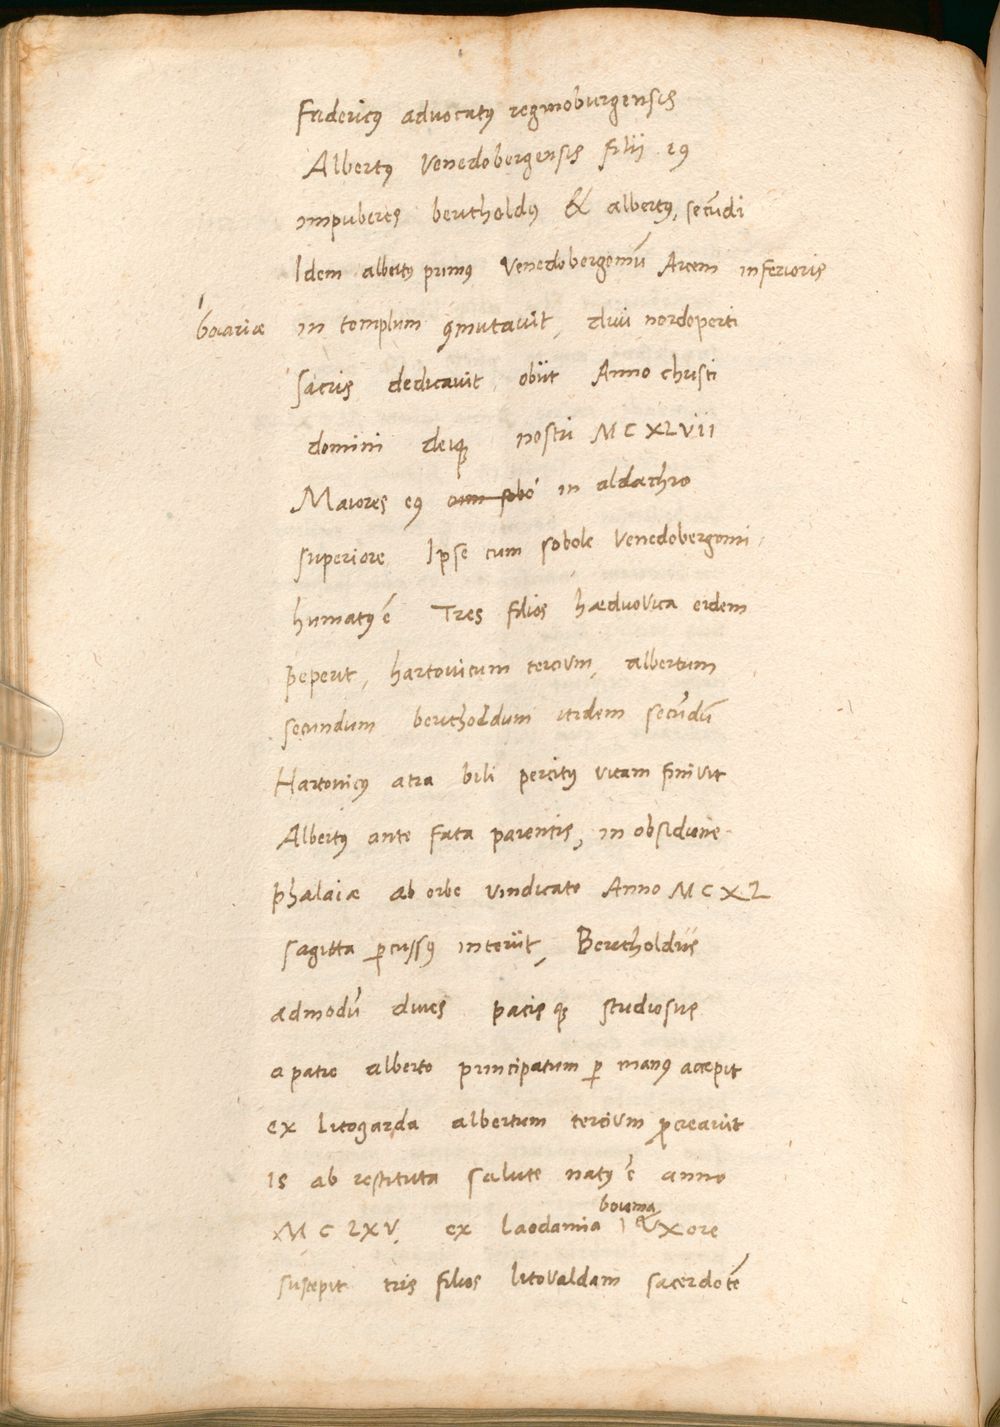 Fridericꝰ advocatꝰ reginoburgensis
Albertꝰ Venedobergensis filii eiꝰ
impuberes bertholdꝰ & albertꝰ, secūdi
Idem albertꝰ primꝰ Venedobergomū Arcem inferioris
boiariæ in templum ꝯmutavit, divi nordoperti
sacris dedicavit obiit Anno christi
domini deiqꝫ nostri MCXLVII
Maiores eiꝰ cum sobo in aldæchro
superiore Ipse cum sobole Venedobergomi
humatꝰ ē Tres filios hæduovica eidem
peperit, hartovicum tercium, albertum
secundum bertholdum itidem secūdū
Hartovicꝰ atra bili percitꝰ vitam finivit
Albertꝰ ante fata parentis, in obsidione
phalaiæ ab orbe vindicato Anno MCXL
sagitta ꝑcussꝰ interiit, Bertholdus
admodū dives pacisqꝫ studiosus
a patre alberto principatum ꝑ manꝰ accepit
ex litogarda albertum tercium ꝓcreavit
is ab restituta salute natꝰ ē anno
MCLXV. ex laodamia boiema uxore
suscepit tris filios litovaldam sacerdotē